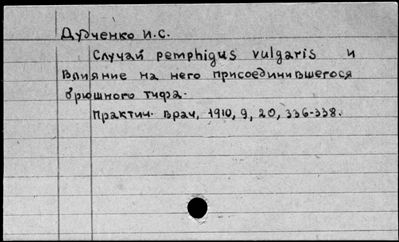 Дудченко И.С.
Случай pemphigus vulgaris и
влияние на него присоединившегося
брюшного тифа.
Практич. врач, 1910, 9, 20, 336-338.